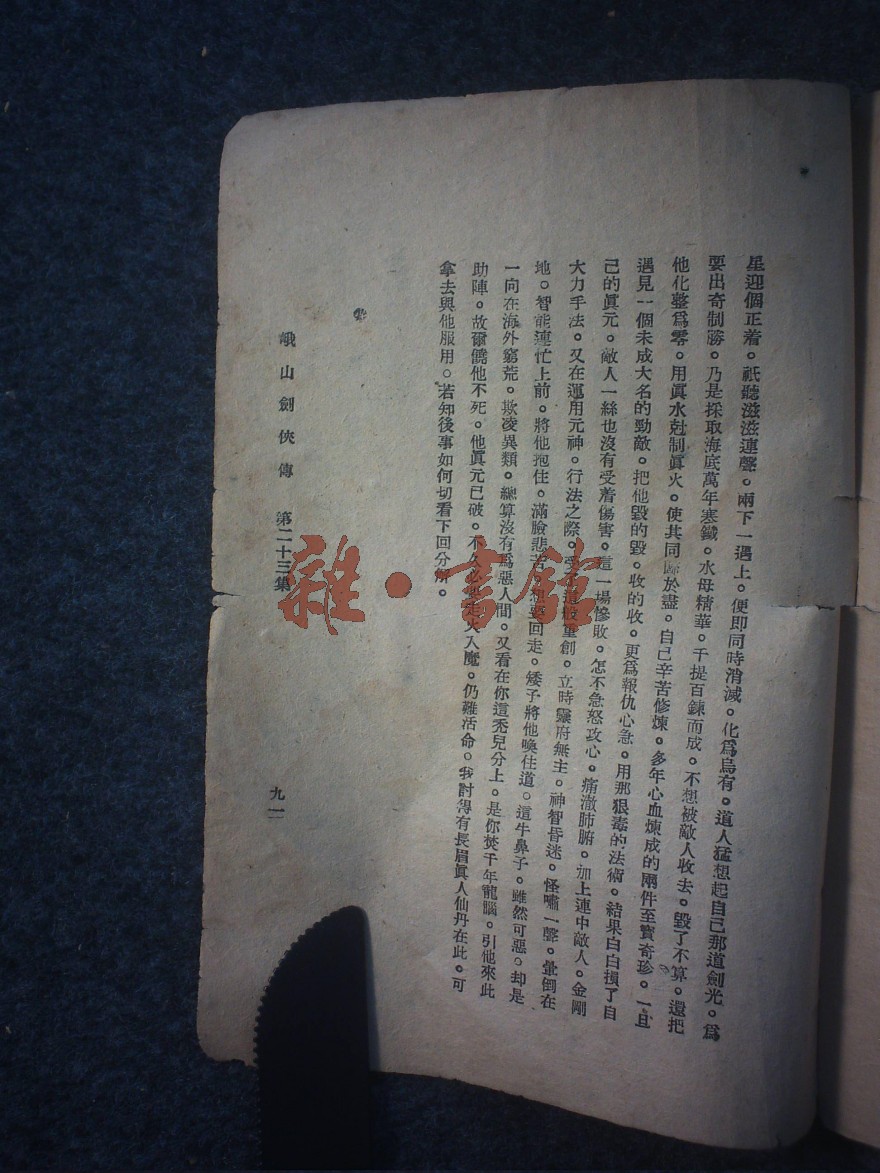 星迎個正着。祇聽滋滋連聲。兩下一遇上。便即同時消滅。化爲烏有。道人猛想起自己那道劍光。爲
要出奇制勝。乃是採取海底萬年寒鐵。水母精華。千提百鍊而成。不想被敵人收去。毀了不算。還把
他化整爲零。用眞水尅制眞火。使其同歸於盡。自己辛苦修煉。多年心血煉成的兩件至寶奇珍。一旦
遇見一個未成大名的勁敵。把他毀的毀。收的收。更爲報仇心急。用那狠毒的法術。結果白白損了自
己的眞元。敵人一絲也沒有受着傷害。這一場慘敗。怎不急怒攻心。痛澈肺腑。加上連中敵人。金剛
大力手法。又在運用元神。行法之際。受重創。立時靈府無主。神智昏迷。怪嘯一聲。暈倒在
地。智能連忙上前。將他抱住。滿臉悲苦。想要回走。矮子將他喚住道。這牛鼻子。雖然可惡。却是
一向在海外窮荒。欺凌異類。總算沒有爲惡人間。又看在你這禿兒分上。是你焚千年龍腦。引他來此
助陣。故爾饒他不死。他眞元已破。不久必走火入魔。仍難活命。我討得有長眉眞人仙丹在此。可
拿去與他服用。若知後事如何切看下回分解。
峨山劍俠傳 第二十三集
九一
雜·書館